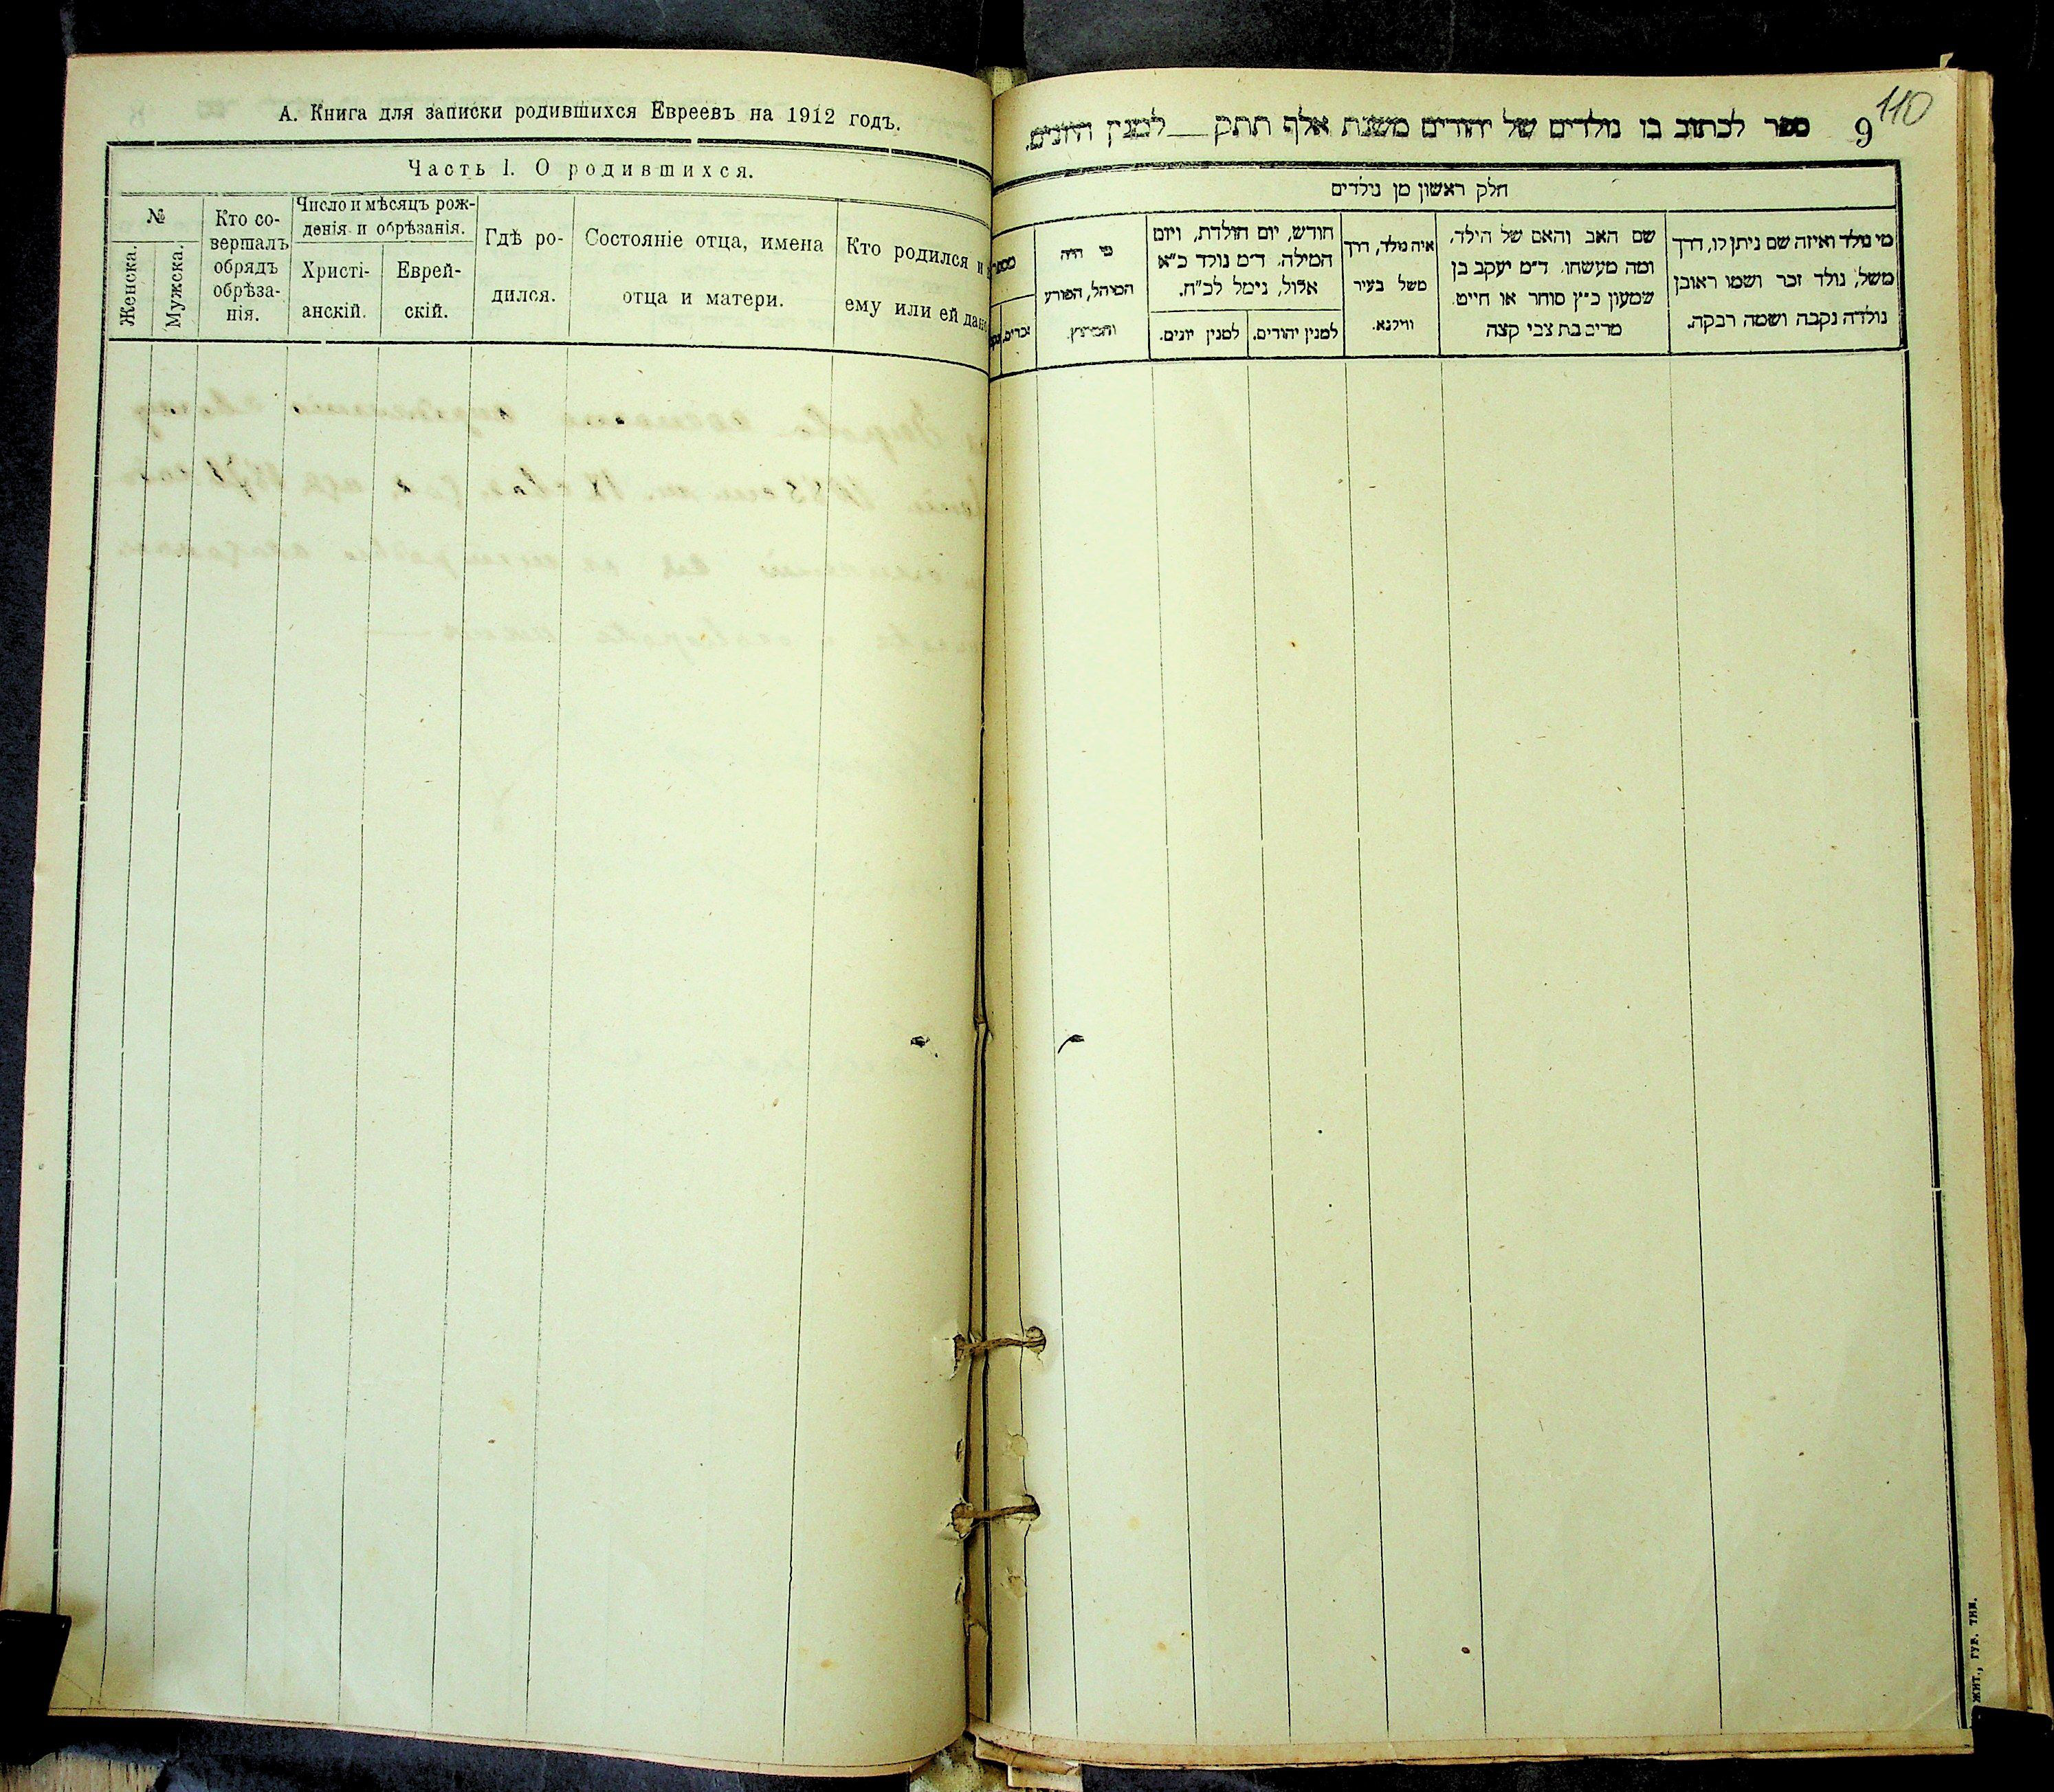 А. Книга для записки родившихся Евреевъ на 1912 годъ.
Часть I. О родившихся.
№
Женска.
Мужска.
Кто со-
вершалъ
обрядъ
обрѣза-
нія.
Число и мѣсяцъ рож-
денія и обрѣзанія.
Христі-
анскій.
Еврей-
скій.
Гдѣ ро-
дился.
Состояніе отца, имена
отца и матери.
Кто родился и
ему или ей дано
110
9
ספר לכתוב בו נולדים של יהודים משנת אלף תתק — למנין היונים.
חלק ראשון מן נולדים
מי נולד ואיזה שם ניתן לו, דרך
משל, נולד זכר ושמו ראובן
נולדה נקבה ושמה רבקה.
שם האב והאם של הילד,
ומה מעשהו. ד״מ יעקב בן
שמעון כ״ץ סוחר או חייט
מרים בת צבי קצה
איה נולד, דרך
משל בעיר
ווילנא.
חודש, יום הולדת, ויום
המילה. ד״מ נולד כ״א
אלול, נימל לכ״ח.
למנין יהודים.
למנין יונים.
מי היה
המוהל, הפורע
והמוצץ.
זכרים.
ЖИТ., ГУБ. ТИП.